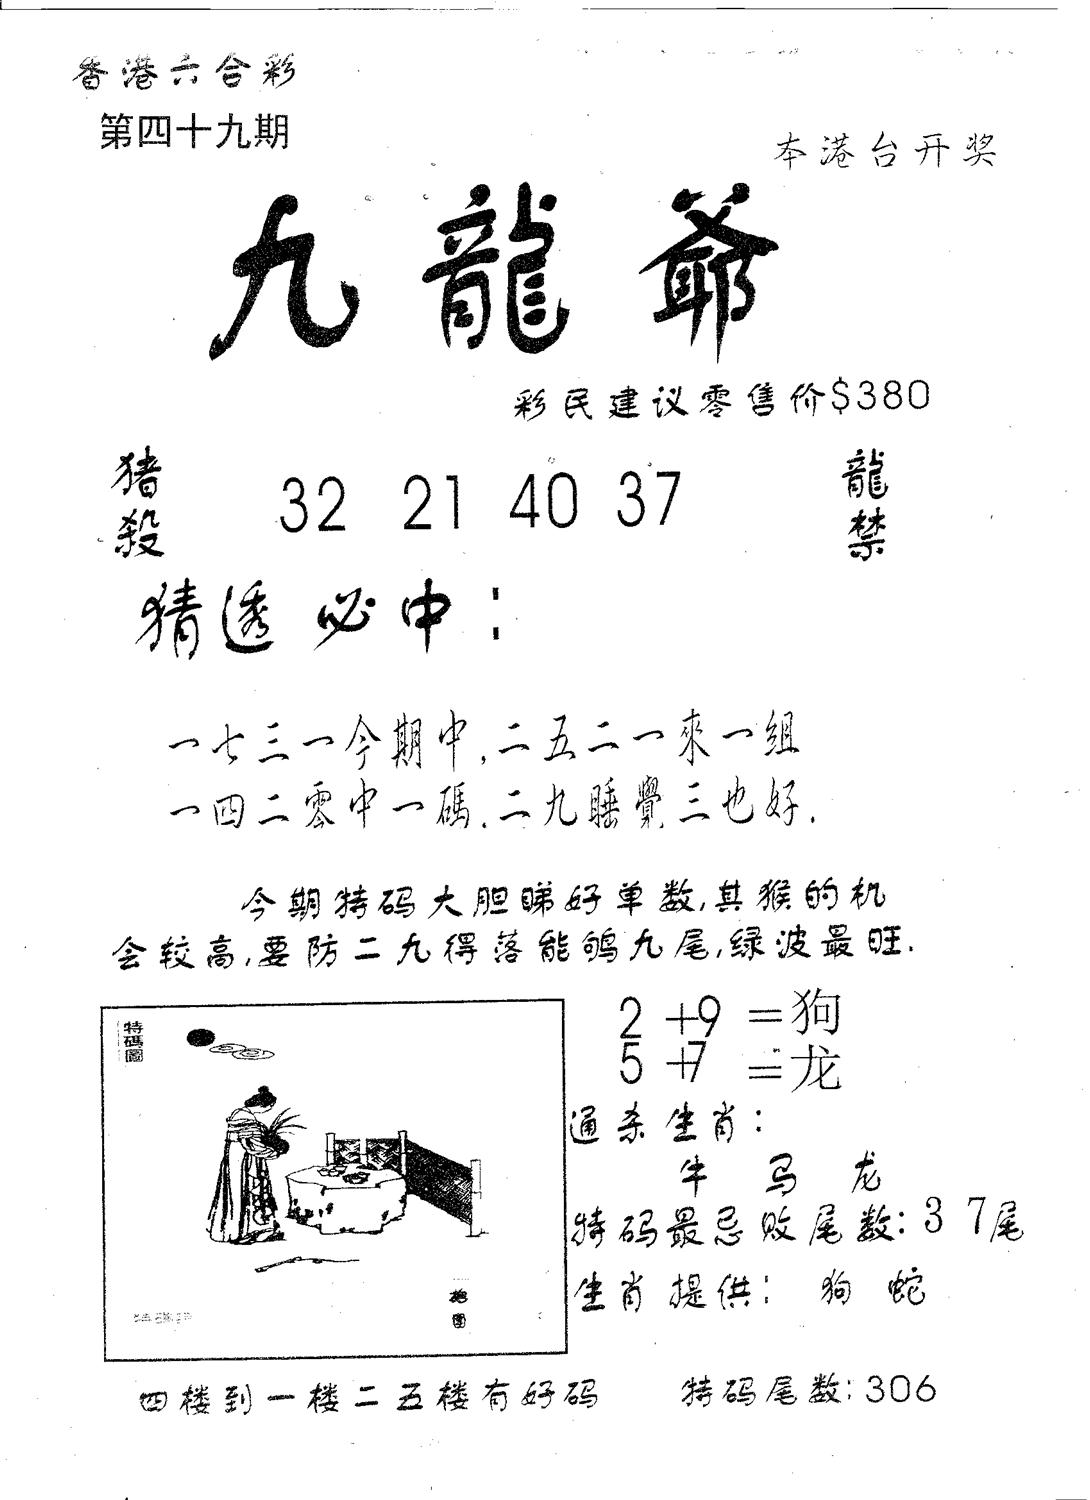 香港六合彩
第四十九期
本港台开奖
九龍爺
彩民建议零售价$380
猪殺
32 21 40 37
龍禁
猜透必中：
一七三一今期中,二五二一來一組
一四二零中一碼.二九睡覺三也好.
今期特码大胆睇好单数,其猴的机
会较高,要防二九得落能鸲九尾,绿波最旺.
特碼圖
2+9=狗
5+7=龙
通杀生肖：
牛 马 龙
特码最忌败尾数：3 7尾
生肖提供：狗 蛇
四楼到一楼二五楼有好码
特码尾数：306